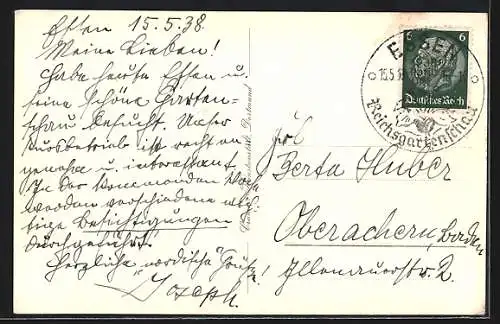 Essen 15.5.38.
Meine Lieben!
Habe heute Essen u.
seine schöne Garten-
schau besucht. Unser
Kursbetrieb ist recht an
genehm u. interessant.
In der kommenden Woche
werden verschiedene wich
tige Besichtigungen
durchgeführt.
Herzliche "nordische" Grüße!
Joseph.
6 6
Deutsches Reich
ESSEN
15.5.
Reichsgartenschau
Dortmund
Frl.
Berta Huber
Oberachern, Baden
Illenauerstr. 2.